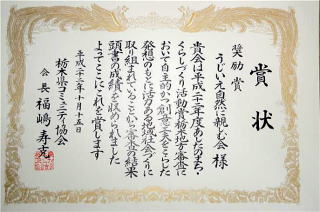 賞状
奨励賞
うじいえ自然に親しむ会 様
貴会は平成二十二年度あしたのまち・
くらしづくり活動賞栃木県地方審査に
おいて自主的かつ創意工夫をこらした
発想のもとに活力ある地域社会づくりに
取り組まれていることから審査の結果
頭書の成績を収められました
よってここにこれを賞します
平成二十二年十月十五日
栃木県コミュニティ協会
会長 福嶋寿克